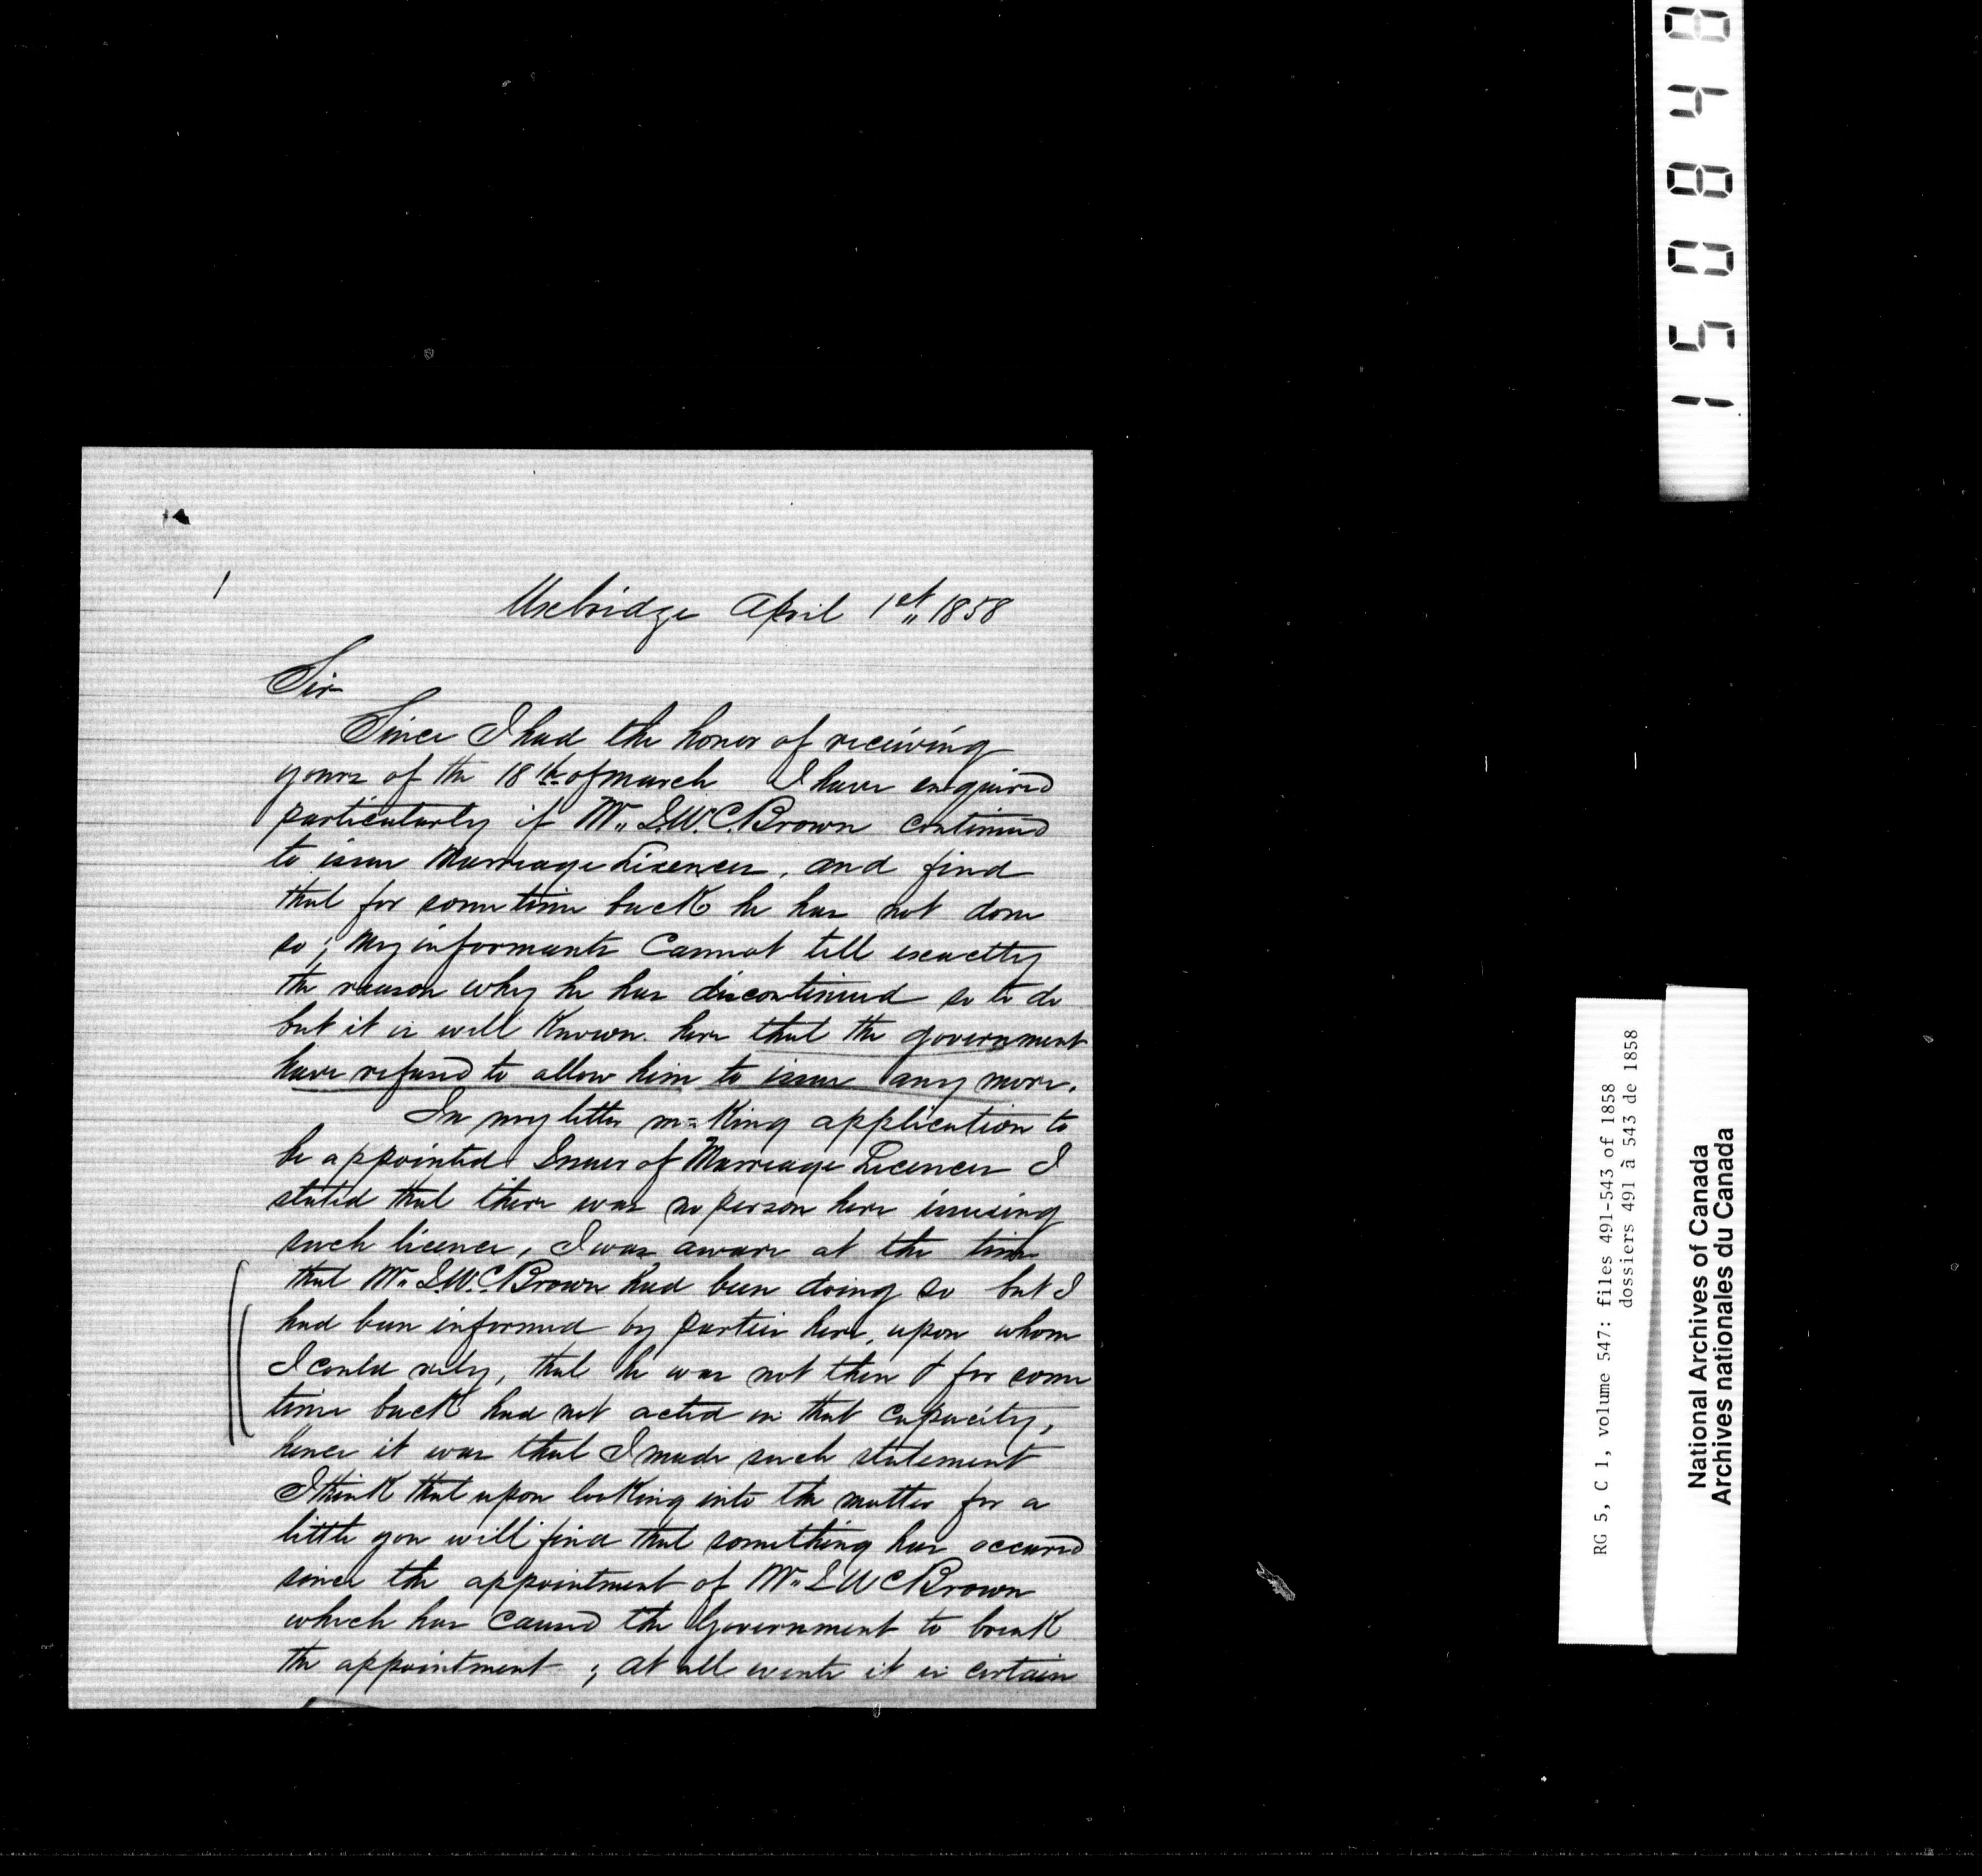 Uxbridge April 1st 1858
Sir
Since I had the honor of receiving
yours of the 18th of march I have enquired
particularly if Mr. I.W.C. Brown continued
to issue Marriage Licences, and find
that for some time back he has not done
so; my informants Cannot tell exactly
the reason why he has discontinued so to do
but it is well Known here that the government
have refused to allow him to issue any more.
In my letter making application to
be appointed Issuer of Marriage Licences I
stated that there was no person here issuing
such licence, I was aware at the time
that Mr. I.W.C. Brown had been doing so but I
had been informed by parties here, upon whom
I could rely, that he was not then & for some
time back had not acted in that Capacity,
hence it was that I made such statement
I think that upon looking into the matter for a
little you will find that something has occured
since the appointment of Mr. I W C Brown
which has caused the Government to break
the appointment ; at all events it is certain
150848
RG 5, C 1, volume 547: files 491-543 of 1858
dossiers 491 à 543 de 1858
National Archives of Canada
Archives nationales du Canada